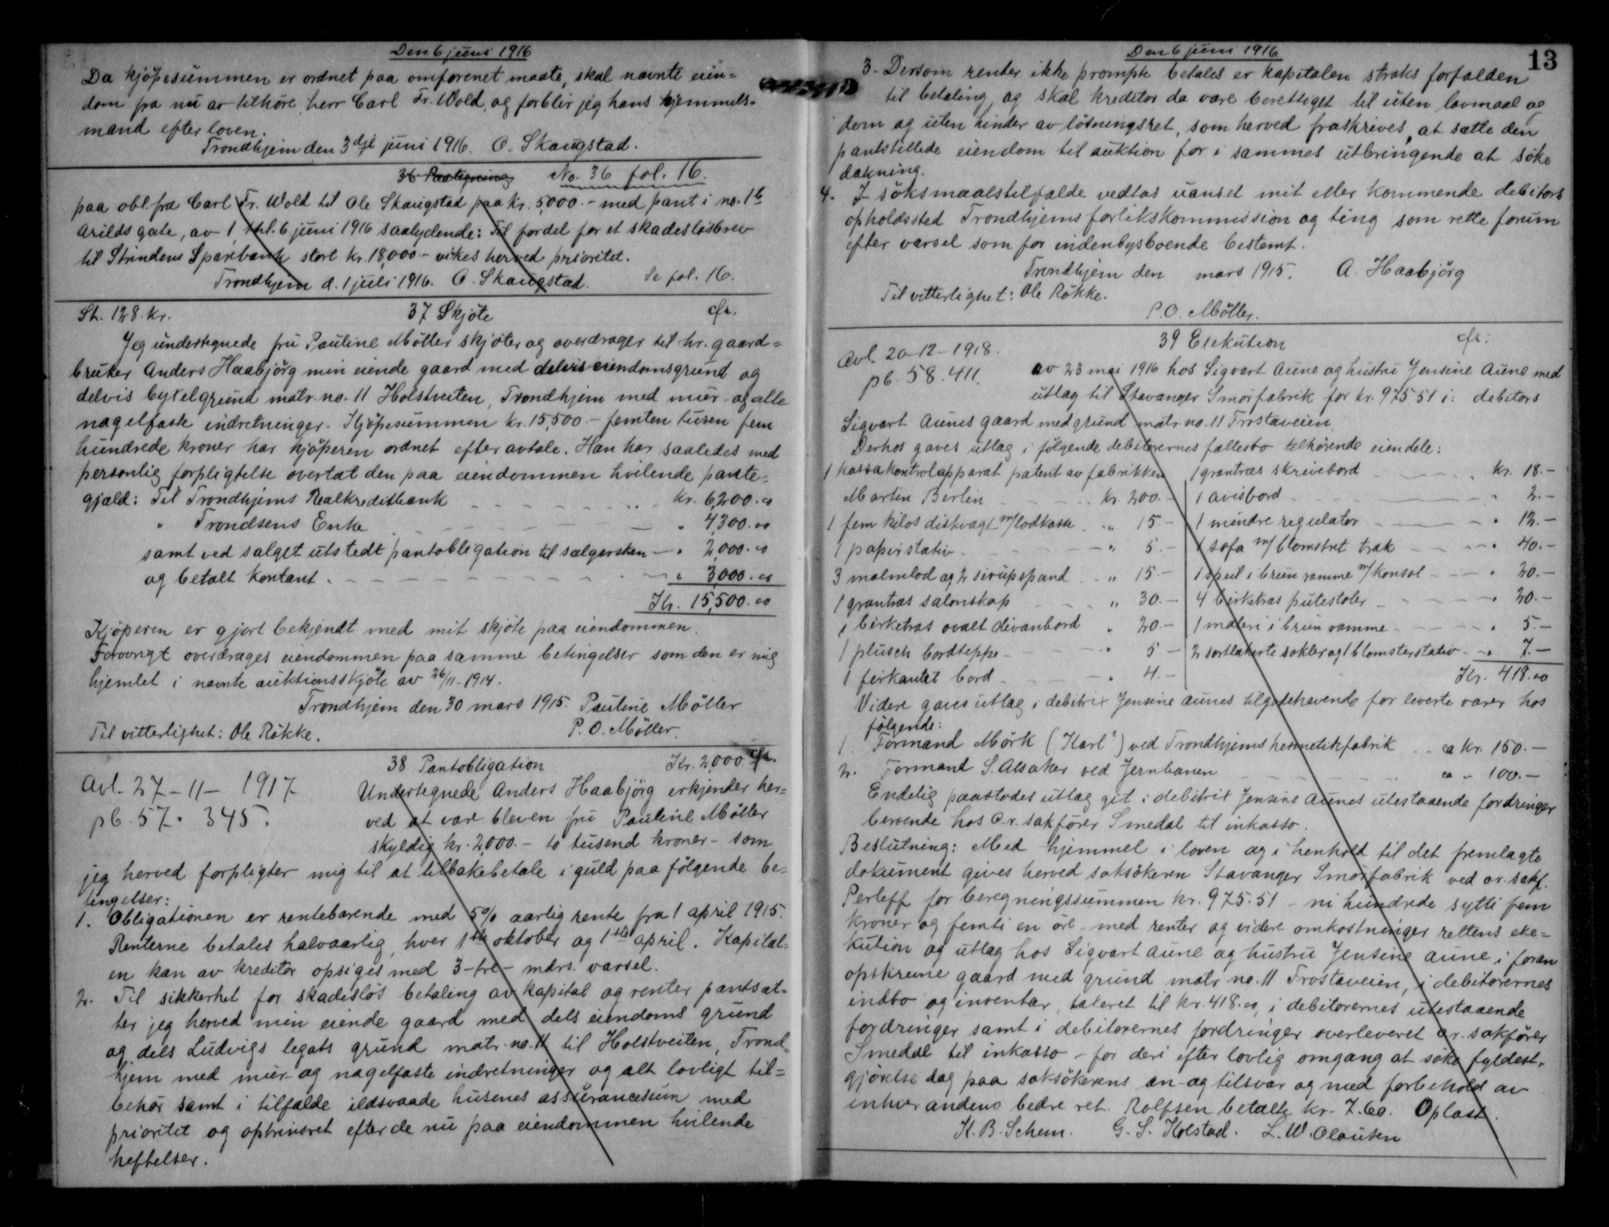 Den 6 juni 1916
Da kjöpesummen er ordnet paa omforenet maate, skal nævnte eien=
dom fra nu av tilhöre herr Carl Fr. Wold, og forblir jeg hans hjemmels=
mand efter loven.
Trondhjem den 3dje juni 1916. O. Skaugstad.
36 Paategning No. 36 fol. 16.
paa obl. fra Carl Fr. Wold til Ole Skaugstad paa kr. 5,000.- med pant i no. 16
Arilds gate, av 1 thl. 6 juni 1916 saalydende: Til fordel for et skadeslösbrev
til Strindens Sparebank stort kr. 18,000 - vikes herved prioritet.
Trondhjem d. 1 juli 1916. O. Skaugstad. Se fol. 16.
St. 128 kr. 37 Skjöte cfr.
Jeg undertegnede fru Pauline Möller skjöter og overdrager til hr. gaard=
bruker Anders Haabjörg min eiende gaard med delvis eiendomsgrund og
delvis byselgrund matr. no. 11 Holstveiten, Trondhjem med mur- og alle
nagelfaste indretninger. Kjöpesummen kr. 15,500 - femten tusen fem
hundrede kroner har kjöperen ordnet efter avtale. Han har saaledes med
personlig forpligtelse overtat den paa eiendommen hvilende pante=
gjæld: Til Trondhjems Realkreditbank kr. 6,200.00
" Trondsens Enke " 4,300.00
samt ved salget utstedt pantobligation til sælgersken " 2,000.00
og betalt kontant. " 3,000.00
Kr. 15,500.00
Kjöperen er gjort bekjendt med mit skjöte paa eiendommen.
Forövrigt overdrages eiendommen paa samme betingelser som den er mig
hjemlet i nævnte auktionsskjöte av 26/11 1914.
Trondhjem den 30 mars 1915. Pauline Möller
Til vitterlighet: Ole Rökke. P. O. Möller.
38 Pantobligation Kr. 2,000 cfr.
Avl. 27-11-1917
pb. 57. 345.
Undertegnede Anders Haabjörg erkjender her=
ved at være bleven fru Pauline Möller
skyldig kr. 2,000.- to tusend kroner - som
jeg herved forpligter mig til at tilbakebetale i guld paa fölgende be-
tingelser:
1. Obligationen er rentebærende med 5% aarlig rente fra 1 april 1915.
Renterne betales halvaarlig, hver 1ste oktober og 1ste april. Kapital-
en kan av kreditor opsiges med 3-tre- mdrs. varsel.
2. Til sikkerhet for skadeslös betaling av kapital og renter pantsæt-
ter jeg herved min eiende gaard med dels eiendoms grund
og dels Ludvigs legats grund matr. no. 11 til Holstveiten, Trond=
hjem med mur- og nagelfaste indretninger og alt lovligt til=
behör samt i tilfælde ildsvaade husenes assurancesum med
prioritet og optrinsret efter de nu paa eiendommen hvilende
heftelser.
Den 6 juni 1916
13
3. Dersom renter ikke prompte betales er kapitalen straks forfalden
til betaling og skal kreditor da være berettiget til uten lovmaal og
dom og uten hinder av lösningsret, som herved fraskrives, at sætte den
pantstillede eiendom til auktion for i sammes utbringende at söke
dækning.
4. I söksmaalstilfælde vedtas uanset mit eller kommende debitors
opholdssted Trondhjems forlikskommission og ting som rette forum
efter varsel som for indenbysboende bestemt.
Trondhjem den mars 1915. A. Haabjörg
Til vitterlighet: Ole Rökke.
P. O. Möller.
39 Exekution cfr.
Avl. 20-12-1918.
pb. 58. 411.
av 23 mai 1916 hos Sigvart Aune og hustru Jensine Aune med
utlæg til Stavanger Smörfabrik for kr. 975 51 i: debitors
Sigvart Aunes gaard med grund matr. no. 11 Frostaveien.
Derhos gaves utlæg i fölgende debitorernes fællesbo tilhörende eiendele:
1 kassakontrolapparat patent av fabrikken
Martin Berlin kr. 200.-
1 fem kilos diskvægt m/lodkasse " 15.-
1 papirstativ " 5.-
3 malmlod og 2 sirupspand " 15.-
1 grantræs salonskap " 30.-
1 birketræs ovalt divanbord " 20.-
1 plusch bordteppe " 5.-
1 firkantet bord " 4.-
1 grantræs skrivebord kr. 18.-
1 avisbord " 2.-
1 mindre regulator " 12.-
1 sofa m/blomstret træk " 40.-
1 speil i brun ramme m/konsol " 20.-
4 birketræs putestoler " 20.-
1 maleri i brun ramme " 5.-
2 sortlakerte sokler og 1 blomsterstativ " 7.-
Kr. 418.00
Videre gaves utlæg i debitrix Jensine Aunes tilgodehavende for leverte varer hos
fölgende:
1. Formand Mörk (Karl?) ved Trondhjems hermetikfabrik ca kr. 150.-
2. Formand S. Alsaker ved Jernbanen ca " 100.-
Endelig paastodes utlæg git i debitrix Jensine Aunes utestaaende fordringer
beroende hos o.r. sakförer Smedal til inkasso.
Beslutning: Med hjemmel i loven og i henhold til det fremlagte
dokument gives herved saksökeren Stavanger Smörfabrik ved o.r. sakf.
Perleff for beregningssummen kr. 975.51 - ni hundrede sytti fem
kroner og femti en öre - med renter og videre omkostninger rettens exe=
kution og utlæg hos Sigvart Aune og hustru Jensine Aune i foran
opskrevne gaard med grund matr. no. 11 Frostaveien, i debitorernes
indbo og inventar, taxeret til kr. 418.00, i debitorernes utestaaende
fordringer samt i debitorernes fordringer overleveret o.r. sakförer
Smedal til inkasso - for deri efter lovlig omgang at söke fyldest-
gjörelse dog paa saksökerens an- og tilsvar og med forbehold av
enhver andens bedre ret. Rolfsen betalte kr. 7.60. Oplæst.
H. B. Schem. G. S. Holstad. L. W. Olausen